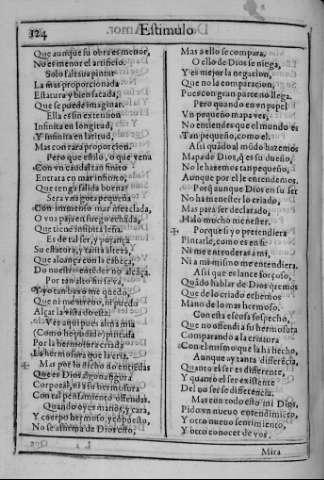 124
Estimulo
Que aunque su obra es menor,
No es menor el artificio.
Solo falta a pintar
La mas proporcionada
Estatura y bien sacada,
Que se puede imaginar.
Ella es sin extension
Infinita en longitud,
Y infinita en latitud,
Mas con rara proporcion.
Pero que estilo, o que vena
Con vn caudal tan finito
Entrara en mar infinito,
Que tenga salida buena?
Sera vna gota pequeña
Con inmenso mar mezclada,
O vna paja en fuego echada,
Que tiene infinita leña.
Es de tal ser, y
Su estatura, y tanta alteza,
Que alcança con la cabeça,
Do nuestro entẽder no alcãça.
Por tan alto
Y yo tan baxo me quedo,
Que ni me atreuo, ni puedo
Alçar la vista do esta.
Ves aqui pues alma mia
(Como he podido) pintada
Por la hermosura criada
La hermosura que la cria.
Mas por lo dicho no entiẽdas
Que es Dios alguna figura
Corporal, ni a su hermosura
Con tal pensamiento ofendas.
Quando oyes manos, y cara,
Y cuerpo hermoso, y cõpuesto,
No se assiente en Dios esto,
Mas a ello se compara.
O ello de Dios se niega,
Y es mejor la negacion,
Que no la comparacion,
Pues con gran parte no llega.
Pero quando en vn papel
Vn pequeño mapa ves,
No entiendes que el mundo es
Tan pequeño, como el.
Assi quãdo al mõdo hazemos
Mapa de Dios, q̃ es su dueño,
No le hazemos tan pequeño,
Aunque por el le entendemos.
Porq̃ aunque Dios en su ser
No ha menester lo criado,
Mas para ser declarado,
Halo mucho menester.
Porque si yo pretendiera
Pintarle, como es en si:
Ni me entenderas a mi,
Ni a mi mismo me entendiera.
Assi que es lance forçoso,
Quãdo hablar de Dios queremos
Que de lo criado echemos
Mano de lo mas hermoso.
Con esta escusa sospecho,
Que no offendi a su hermosura
Comparando a la criatura
Con el mismo que la ha hecho,
Aunque ay tanta differẽcia,
Quanto el ser es differente,
Y quanto el ser existente
Del no ser se differencia.
Mas con todo esto mi Dios,
Pido vn nueuo entendimiẽto,
Y otro nueuo sentimiento,
Y otro conocer de vos.
Mira